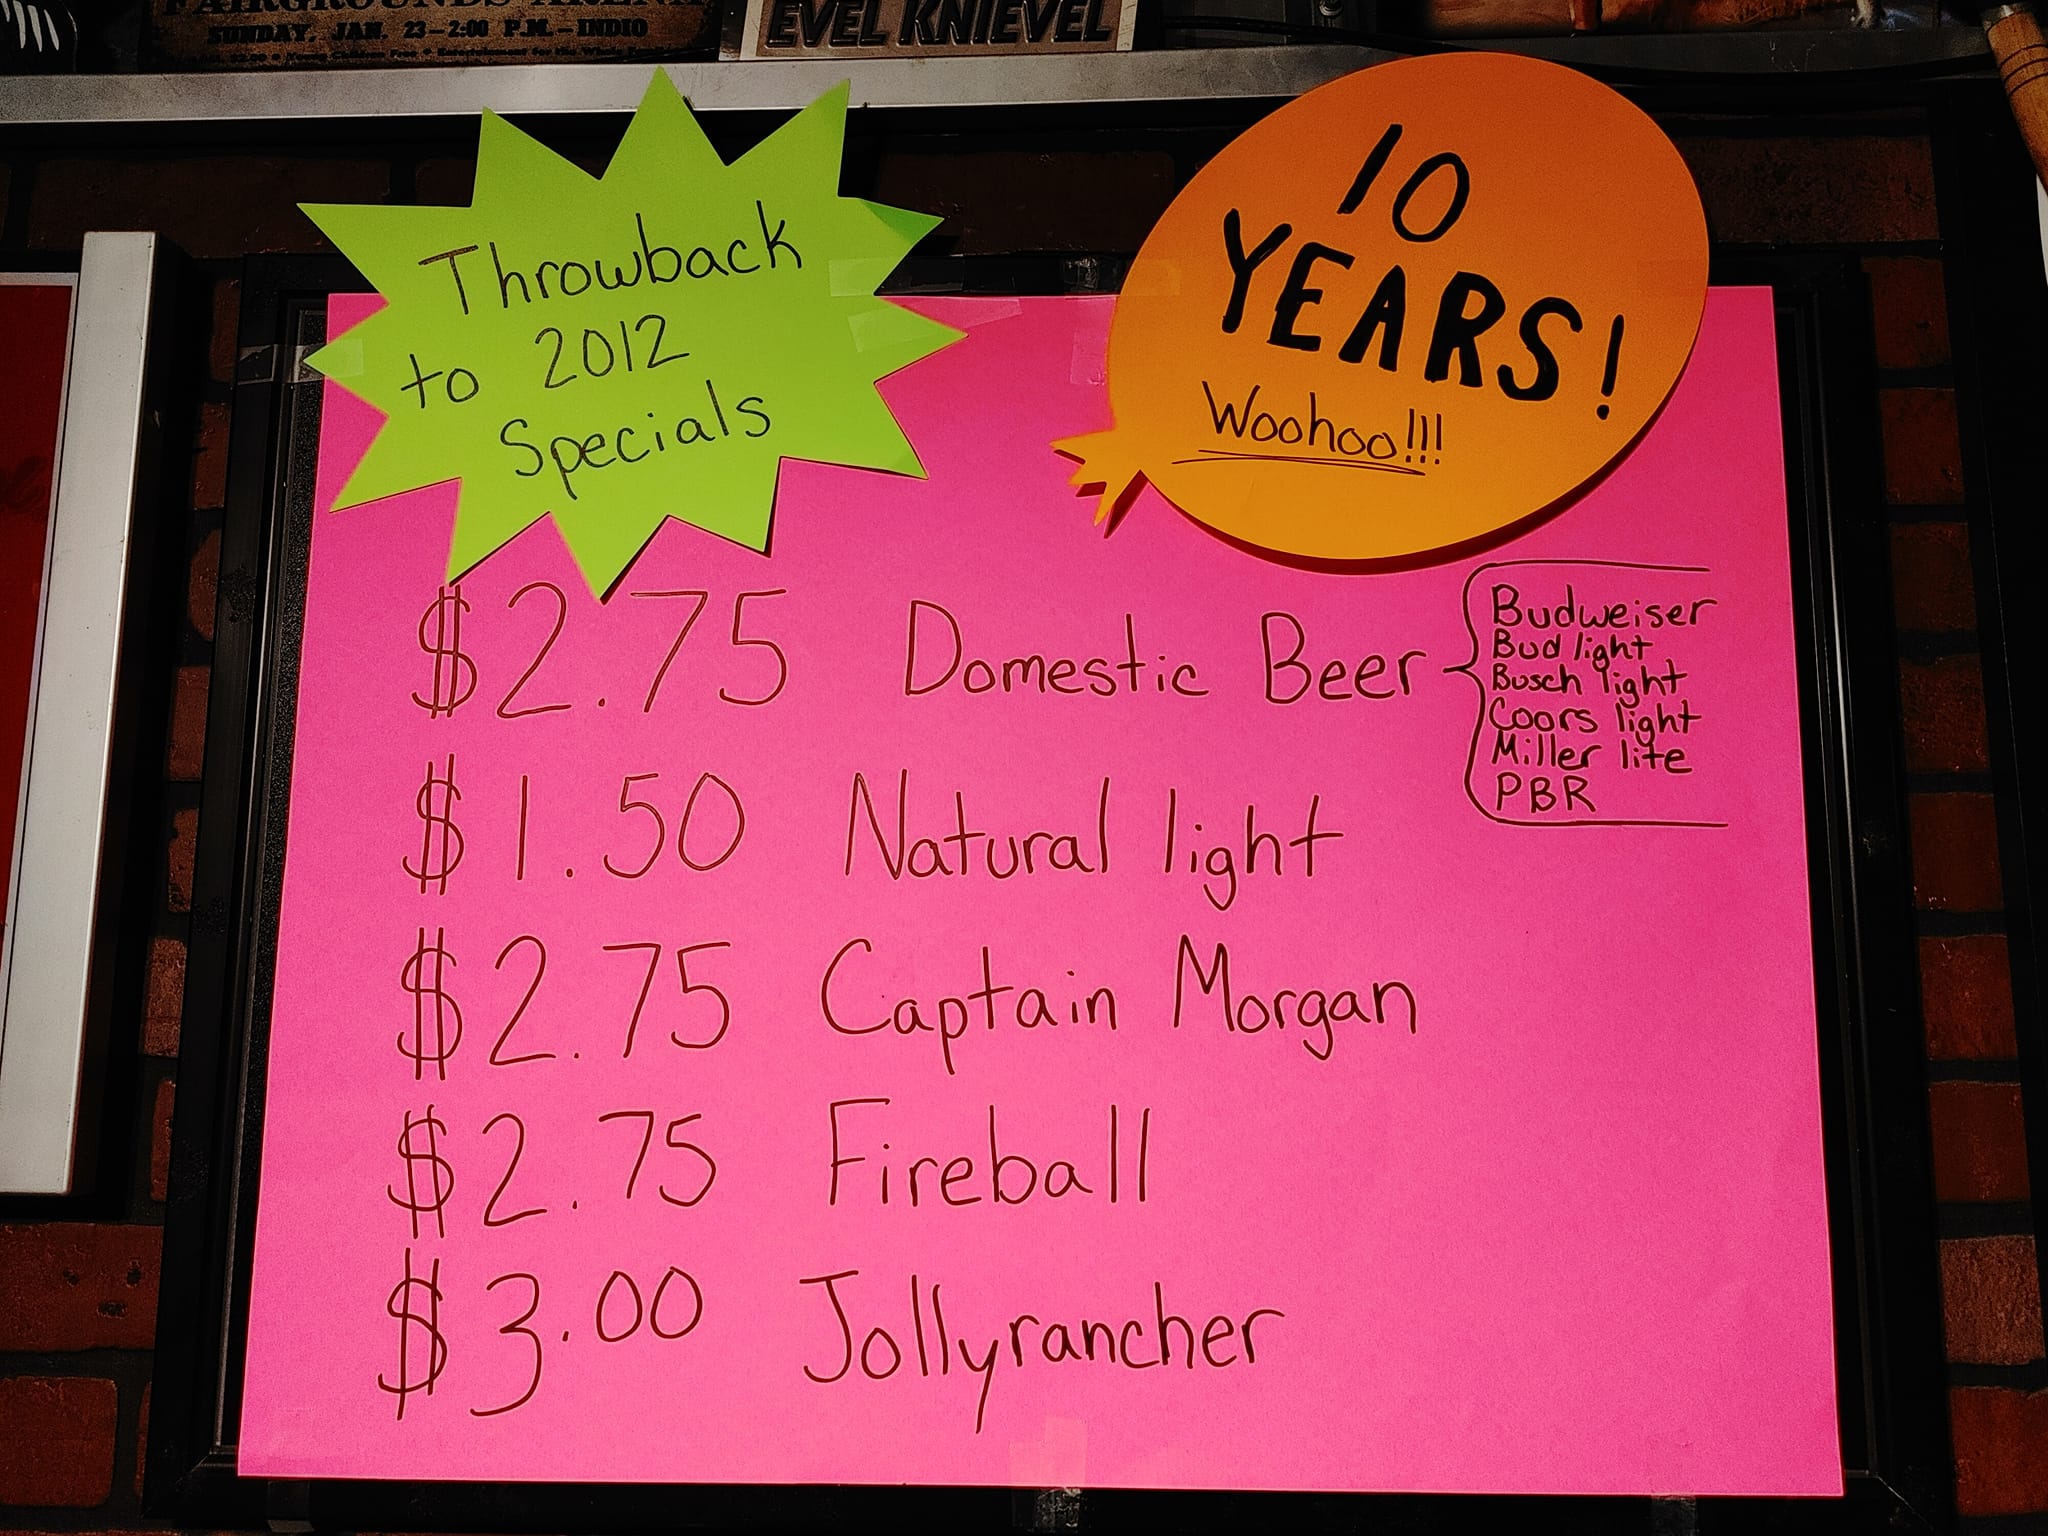 FAIRGROUNDS ARENA
SUNDAY, JAN. 23-2:00 P.M.-INDIO
EVEL KNIEVEL
Throwback
to 2012
Specials
10
YEARS!
Woohoo!!!
$2.75 Domestic Beer
Budweiser
Bud light
Busch light
Coors light
Miller lite
PBR
$1.50 Natural light
$2.75 Captain Morgan
$2.75 Fireball
$3.00 Jollyrancher